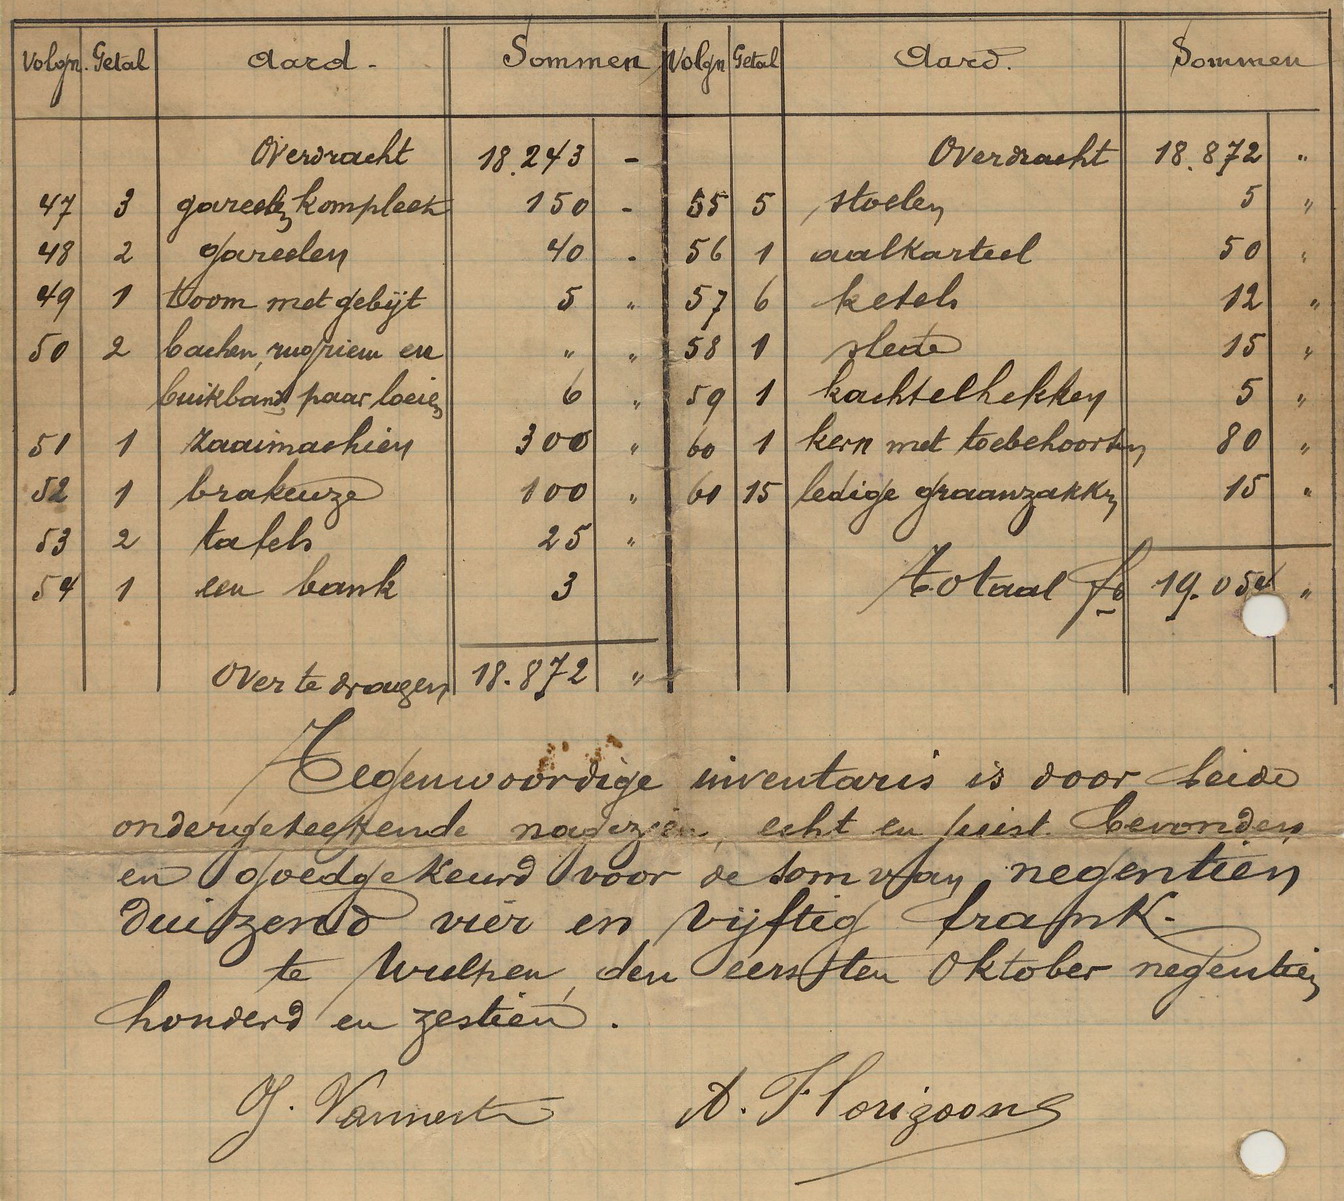 Volgn. Getal Aard - Sommen
Overdracht 18.243 -
47 3 gareelen kompleet 150 -
48 2 gareelen 40 -
49 1 toom met gebijt 5 "
50 2 bachen, rugriem en " "
buikband paar loeien 6 "
51 1 Zaaimachien 300 "
52 1 brakeuze 100 "
53 2 tafels 25 "
54 1 een bank 3
Over te dragen 18.872 "
Volgn Getal Aard. Sommen
Overdracht 18.872 "
55 5 stoelen 5 "
56 1 aalkarteel 50 "
57 6 ketels 12 "
58 1 slede 15 "
59 1 kachtelhekken 5 "
60 1 kern met toebehoorten 80 "
60 15 ledige graanzakken 15 "
Totaal fr 19.054 "
Tegenwoordige inventaris is door beide
ondergeteekende nagezien, echt en juist bevonden
en goedgekeurd voor de som van negentien
duizend vier en vijftig frank.
te Wulpen, den eersten Oktober negentien
honderd en zestien.
J. Vanneste A. Florizoone